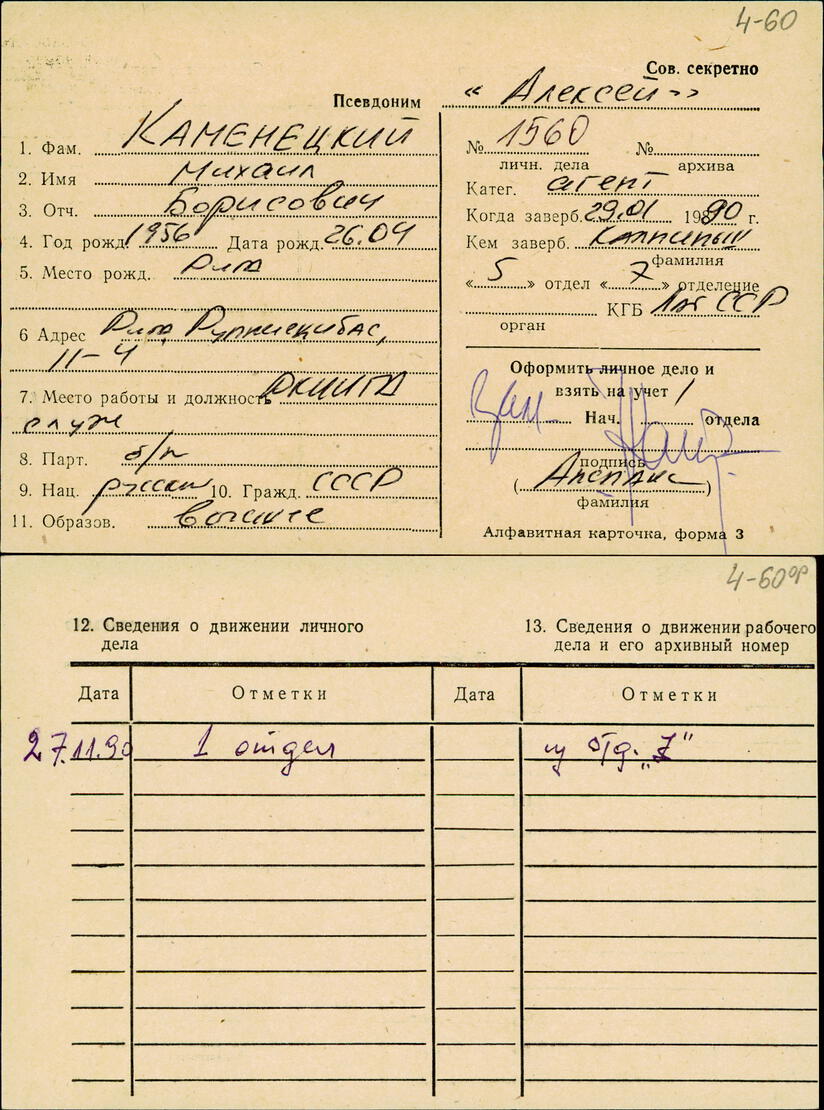 4-60
Сов. секретно
Псевдоним « Алексей »
1. Фам. КАМЕНЕЦКИЙ
2. Имя Михаил
3. Отч. Борисович
4. Год рожд. 1956 Дата рожд. 26.04
5. Место рожд. Рига
6 Адрес Рига,
11-4
7. Место работы и должность РКИИГА
служ
8. Парт. б/п
9. Нац. русский 10. Гражд. СССР
11. Образов. высшее
№ 1560 №
личн. дела архива
Катег. агент
Когда заверб. 29.01 1990 г.
Кем заверб.
фамилия
« 5 » отдел « 7 » отделение
КГБ Лат ССР
орган
Оформить личное дело и
взять на учет
Нач. отдела
подпись
( )
фамилия
Алфавитная карточка, форма 3
4-60об
12. Сведения о движении личного
дела
13. Сведения о движении рабочего
дела и его архивный номер
Дата Отметки Дата Отметки
27.11.90 1 отдел из отд. „7"